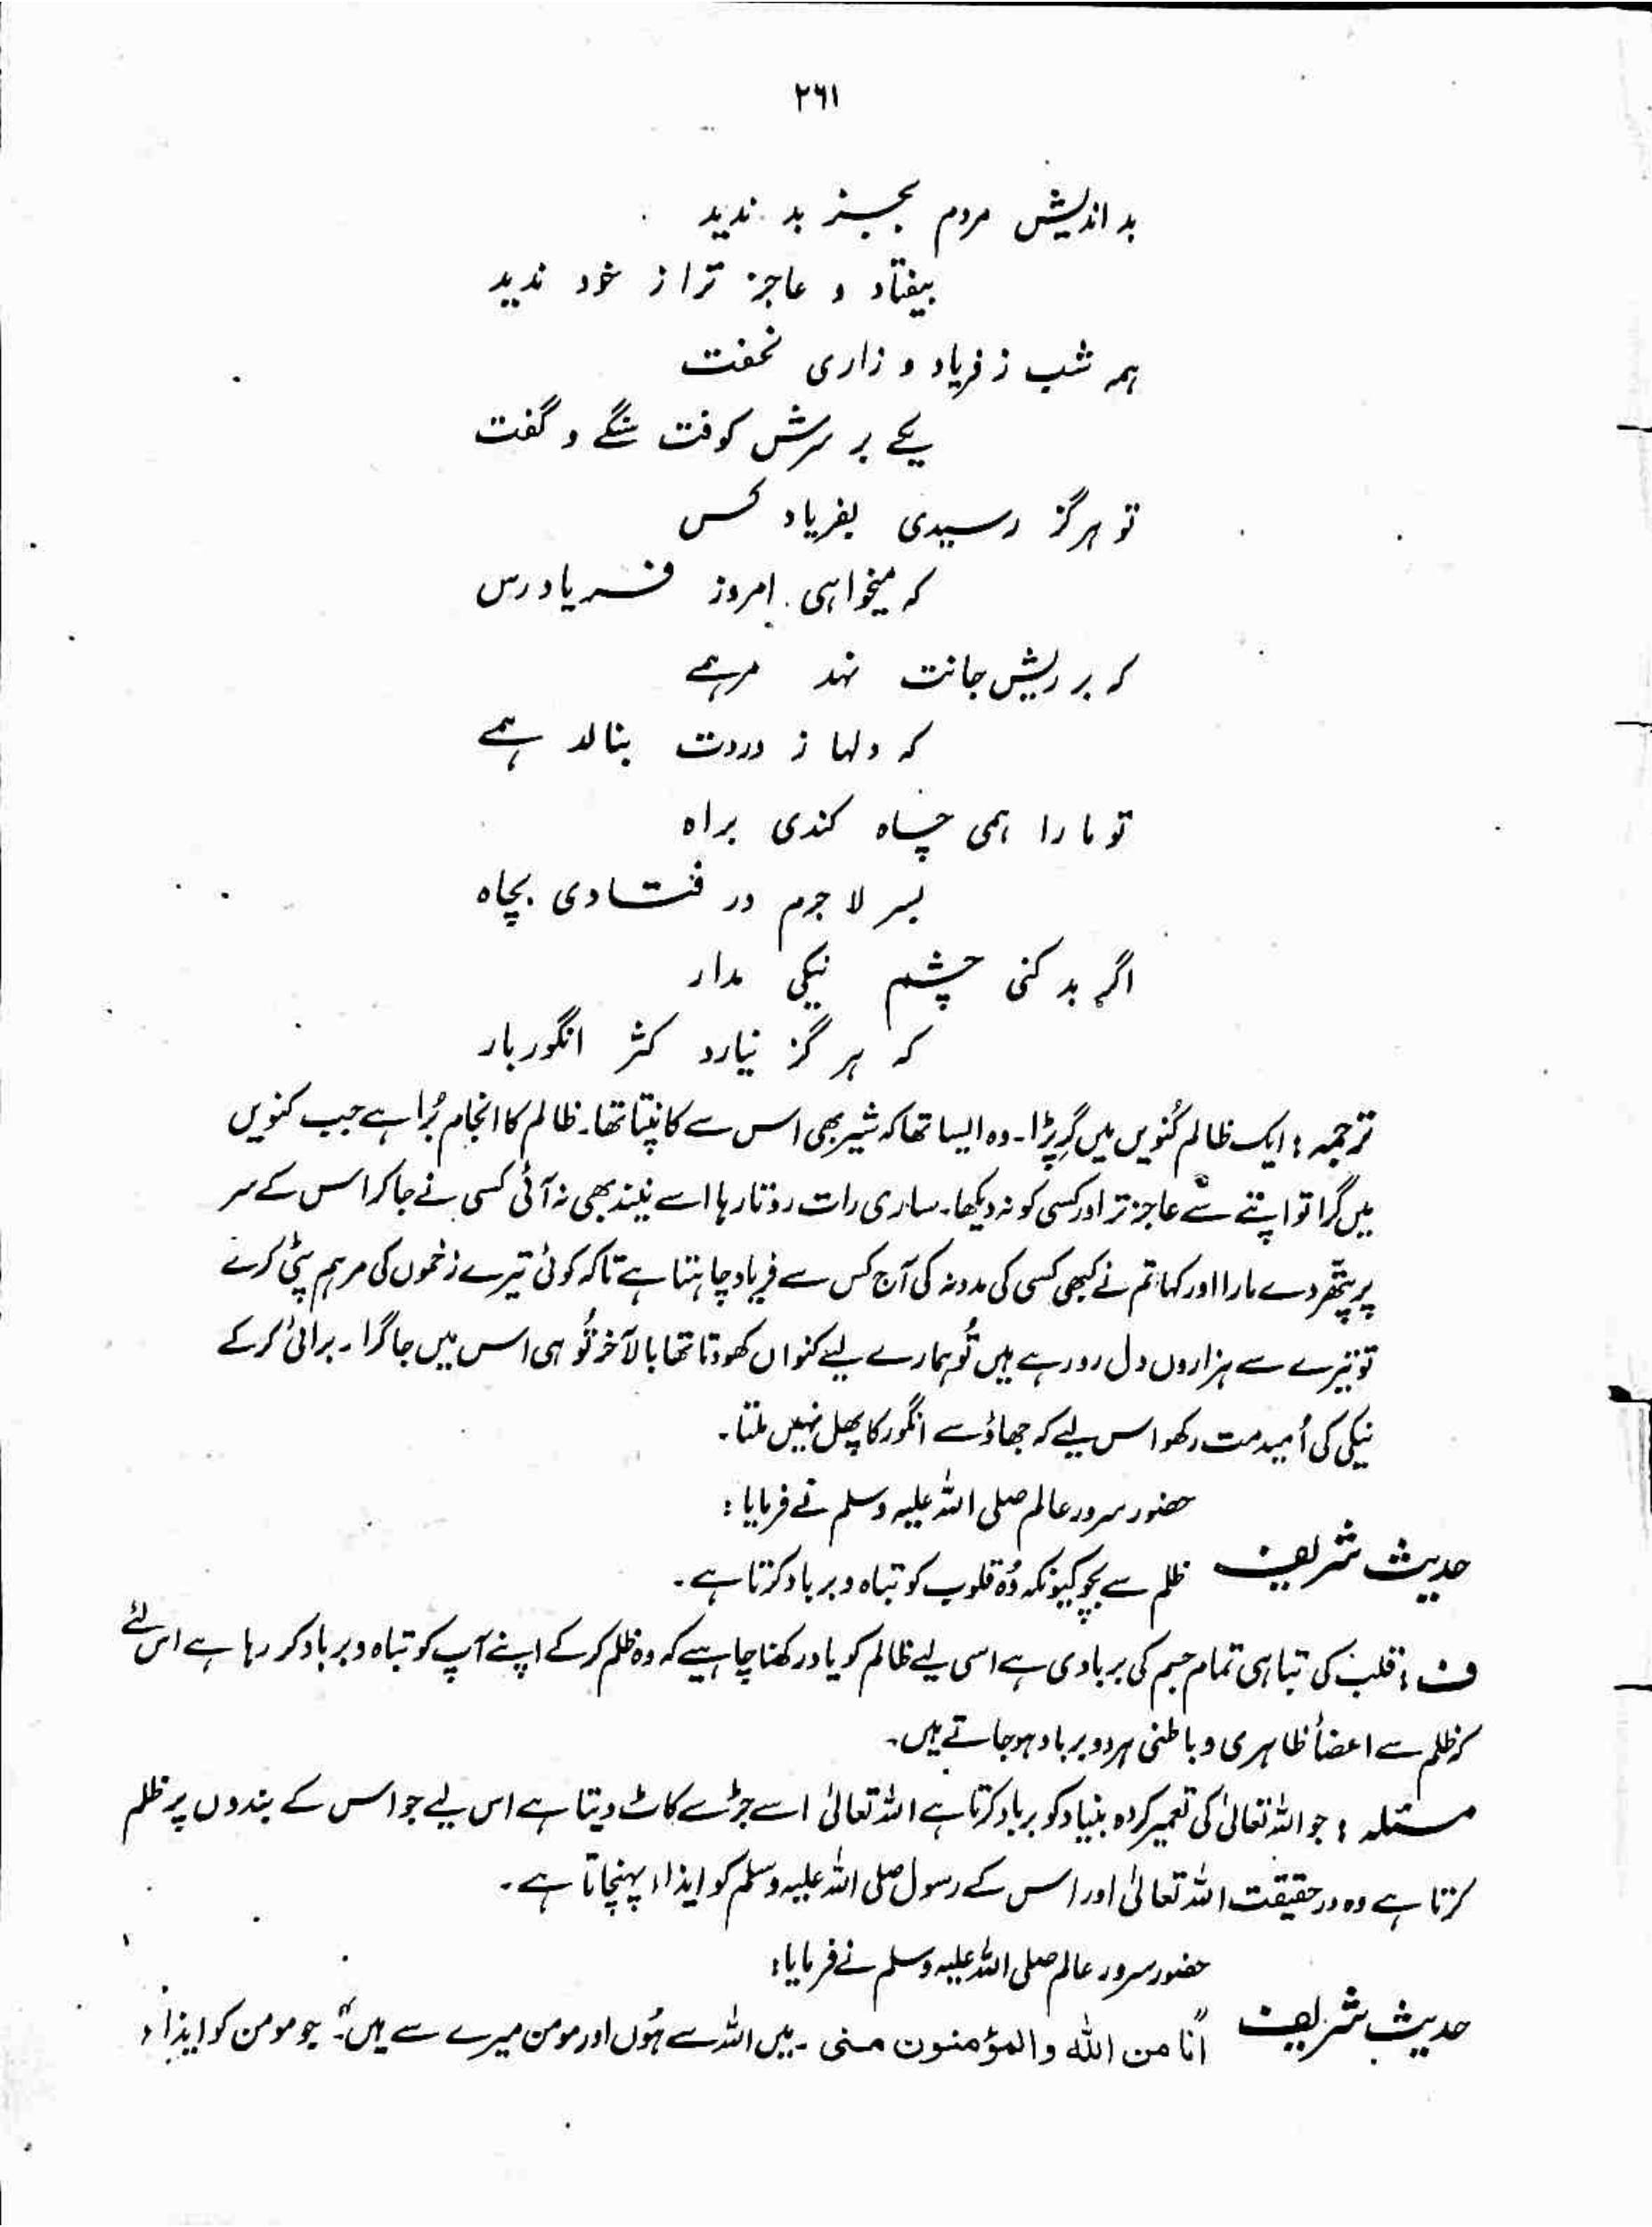 ۲۶۱
بد اندیش مردم بجسز بد ندید
بیفتاد و عاجز تر از خود ندید
ہمہ شب ز فریاد و زاری نخفت
یکے بر سرش کوفت سنگے و گفت
تو ہرگز رسیدی بفریاد کس
کہ میخواہی امروز فریاد رس
کہ بر ریش جانت نہد مرہمے
کہ دلہا ز دردت بنالد ہمے
تو ما را ہمی چاہ کندی براہ
بسر لا جرم در فتادی بچاہ
اگر بد کنی چشم نیکی مدار
کہ ہر گز نیارد گز انگور بار
ترجمہ : ایک ظالم کُنویں میں گِر پڑا۔ وہ ایسا تھا کہ شیر بھی اس سے کانپتا تھا۔ ظالم کا انجام بُرا ہے جب کنویں
میں گرا تو اپنے سے عاجز تر اور کسی کو نہ دیکھا۔ ساری رات روتا رہا اسے نیند بھی نہ آئی کسی نے جا کر اس کے سر
پر پتھر دے مارا اور کہا تم نے کبھی کسی کی مدد نہ کی آج کس سے فریاد چاہتا ہے تاکہ کوئی تیرے زخموں کی مرہم پٹی کرے
تو تیرے سے ہزاروں دل رو رہے ہیں تُو ہمارے لیے کنواں کھودتا تھا بالآخر تُو ہی اس میں جا گرا۔ برائی کر کے
نیکی کی اُمید مت رکھو اس لیے کہ جھاؤ سے انگور کا پھل نہیں ملتا۔
حضور سرور عالم صلی اللہ علیہ وسلم نے فرمایا :
حدیث شریف ظلم سے بچو کیونکہ وُہ قلوب کو تباہ و برباد کرتا ہے۔
ف : قلب کی تباہی تمام جسم کی بربادی ہے اسی لیے ظالم کو یاد رکھنا چاہیے کہ وہ ظلم کر کے اپنے آپ کو تباہ و برباد کر رہا ہے اس لئے
کہ ظلم سے اعضاء ظاہری و باطنی ہر دو برباد ہو جاتے ہیں۔
مسئلہ : جو اللہ تعالیٰ کی تعمیر کردہ بنیاد کو برباد کرتا ہے اللہ تعالیٰ اسے جڑ سے کاٹ دیتا ہے اس لیے جو اس کے بندوں پر ظلم
کرتا ہے وہ درحقیقت اللہ تعالیٰ اور اس کے رسول صلی اللہ علیہ وسلم کو ایذاء پہنچاتا ہے۔
حضور سرور عالم صلی اللہ علیہ وسلم نے فرمایا :
حدیث شریف "انا من الله والمؤمنون منی۔ میں اللہ سے ہُوں اور مومن میرے سے ہیں"۔ جو مومن کو ایذاء